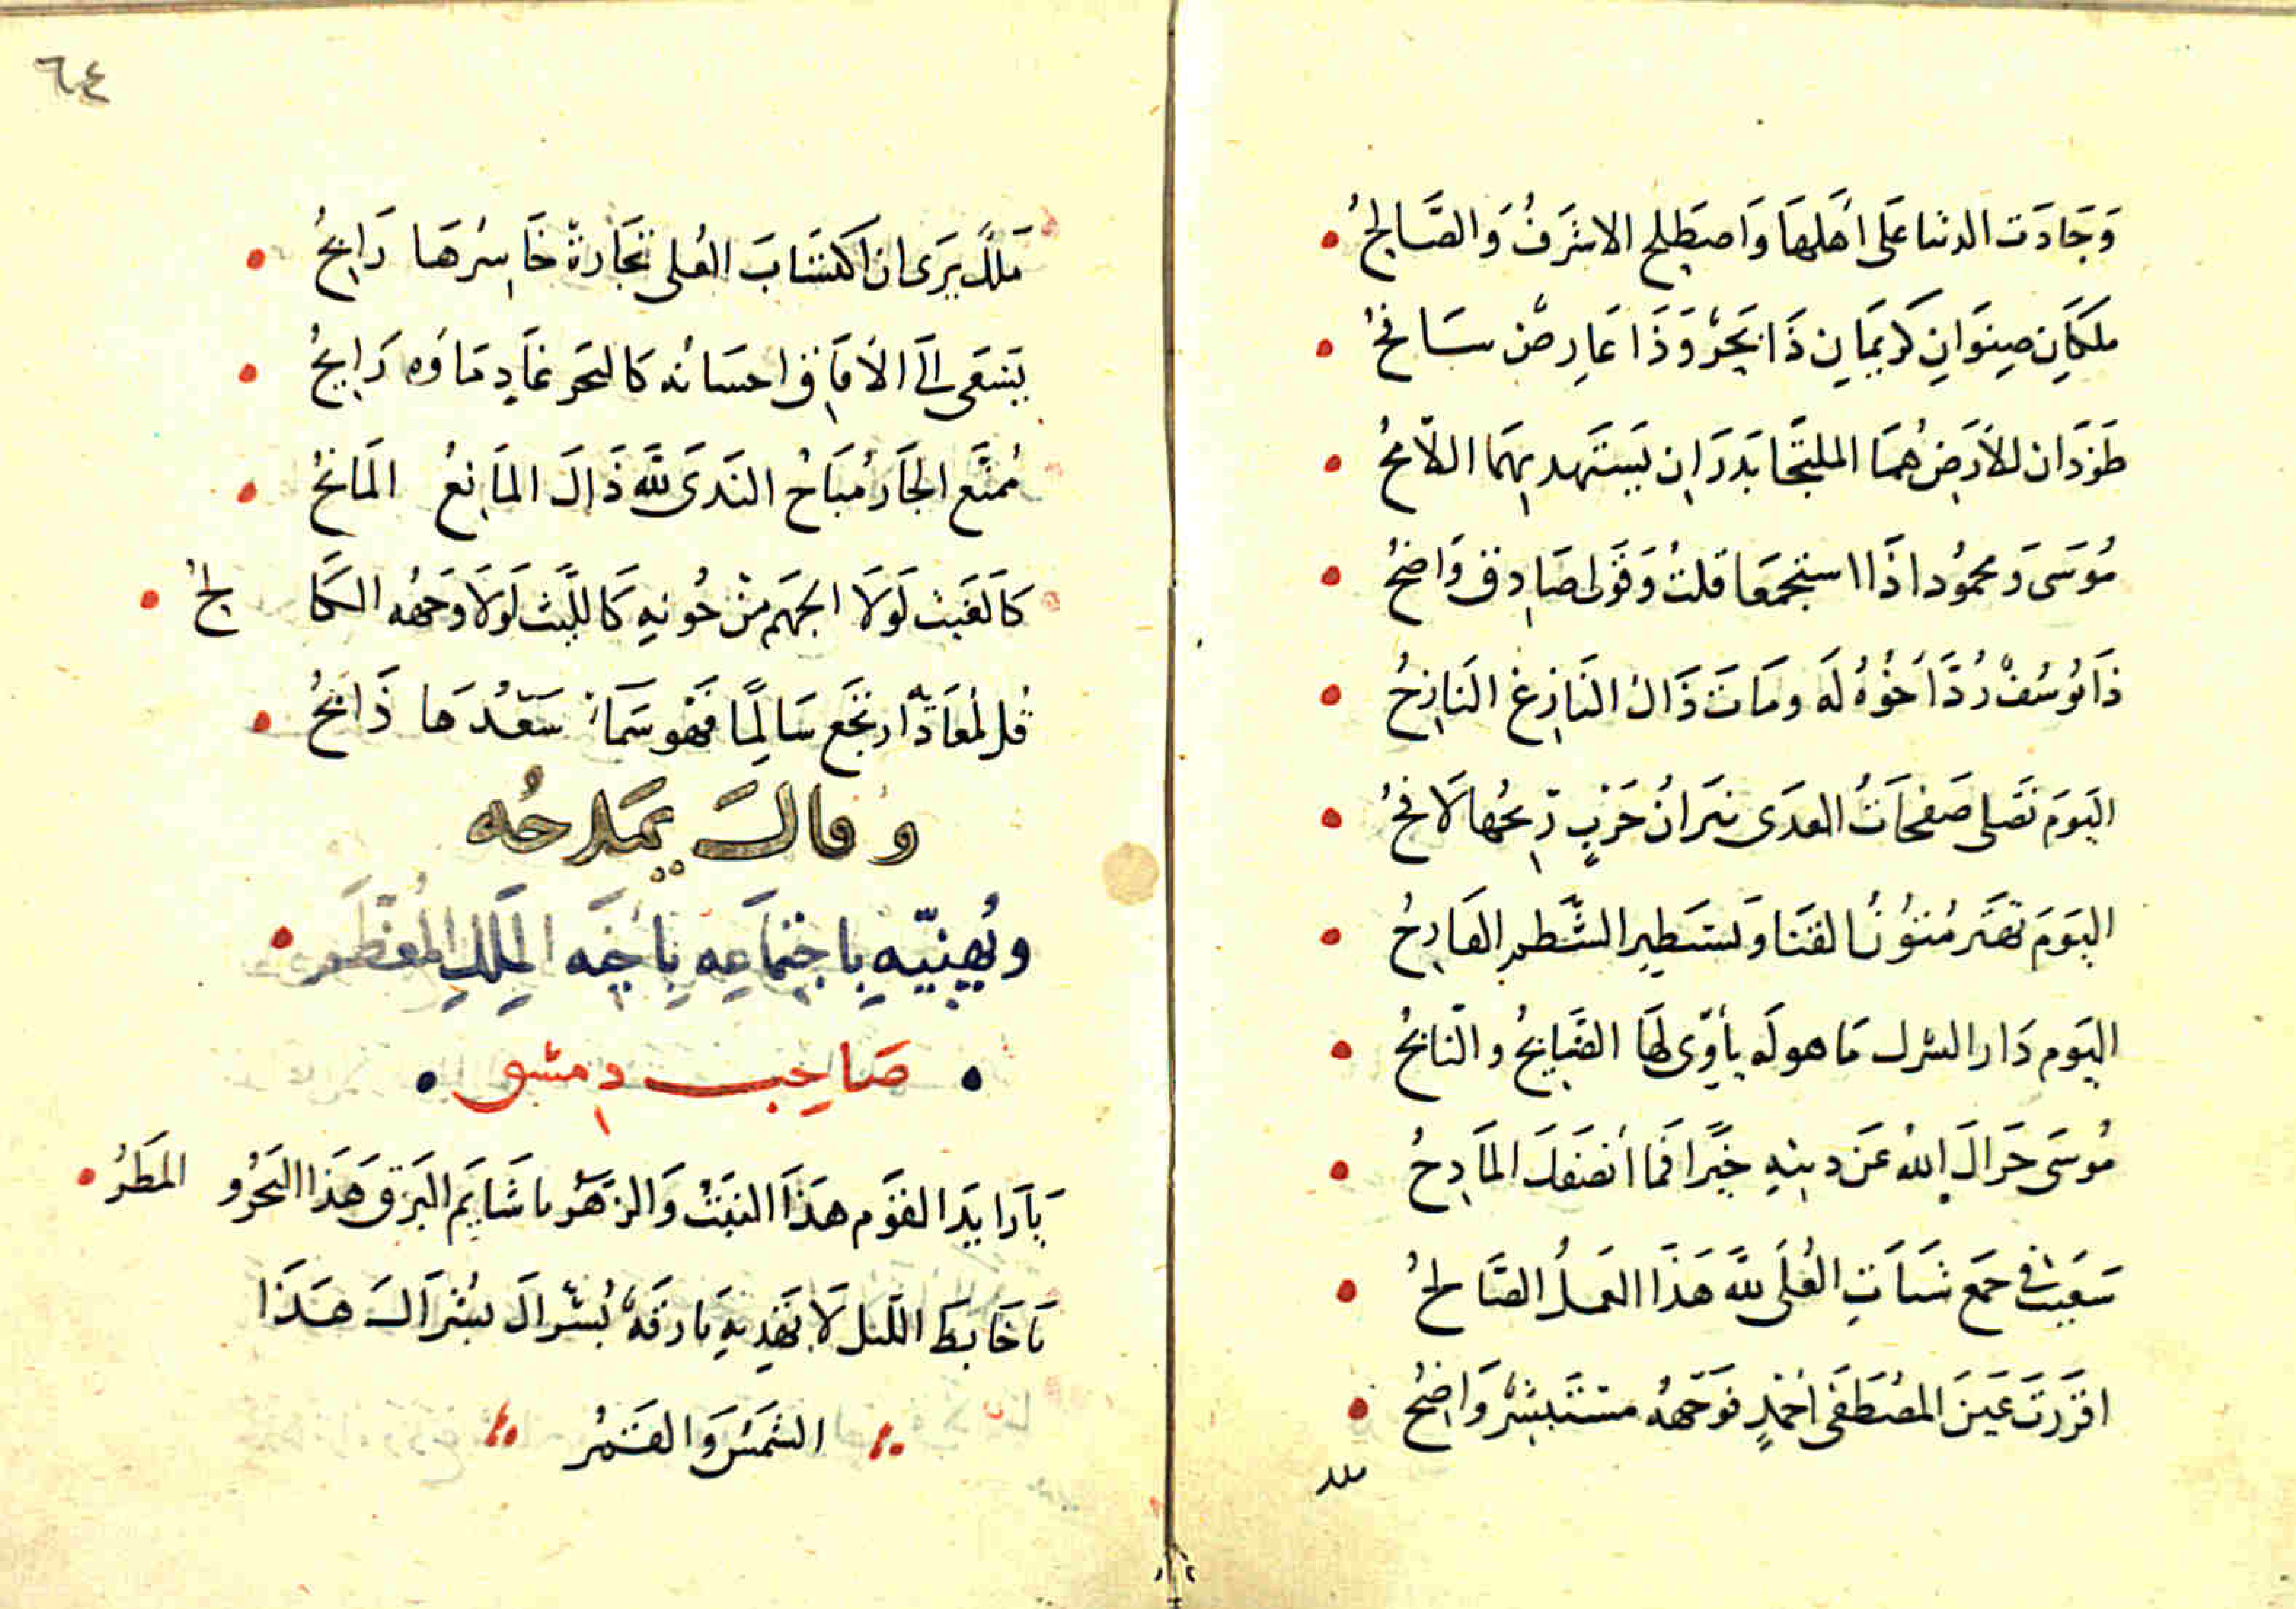 وَجَادَت الدنيا عَلى اهَلهَا وَاصطَلح الاشرَفُ وَالصَّالحُ
ملكَانِ صِنوَانِ كَريمَانِ ذَا بَحرٌ وَذَا عَارِضٌ سَافحُ
طَودَان للأرَضِ هُمَا الملتجَا بَدرَانِ يَستَهدِ بِهمَا اللّامحُ
مُوسَى وَمحمُود اذَا استجمعَا قلتُ وَقَولى صَادِق وَاضحُ
ذَا يوُسُفٌ رُدَّ أخُوُهُ لَه ومَاتَ ذَاكَ النَازِغ النَازحُ
اليَومَ تَصلى صَفحَاتُ العدَى نيرَانُ حَربٍ رِيحُها لَافحُ
اليَومَ تهتَز مُتوُنُ القنَا وَيستَطير الشَّطبِ القَارِحُ
اليَوم دَار الشرك مَاهولَه يأوِى لهَا الضَّابحُ والنّابحُ
مُوسَى جَزاكَ اللهُ عَن دِينِهِ خَيرًا فمَا أنصَفكَ المَادِحُ
سَعَيتَ فى جمَع شتَاتِ العُلَى للَّه هَذَا العَملُ الصَّالحُ
اقرَرتَ عَينَ المصُطَفى احَمدٍ فوَجههُ مستَبشرٌ وَاضحُ
ملك
٦٤
مَلكٌ يَرَى ان اكتسَابَ العُلى تجَارةٌ خَاسِرُهَا رَابحُ
يَسَعَى الَى الأفَاقِ احسَانُه كَالبَحرِ غَادٍ مَاؤه رَايحُ
مُمنَّع الجَار مُبَاحُ النَدَى للَّه ذَاكَ المَانِعُ المَانحُ
كَالغَيث لَولَا الجَهمَ مِن جُونهِ كَاللَّيث لَولَا وَجهُه الكَالحُ
قُل لمُعَادّ ارتجَع سَالِمًا فهَو سَمَاءٌ سَعدُهَا ذَابحُ
وَقالَ يَمَدحُه
ويُهنِيّهِ بِاجتِمَاعِهِ بِاخَيهِ المَلكِ المُعظَّمِ
صَاحِب دِمشق
يَارَايدَ القوَم هَذَا النَبتُ وَالزهَرُ يا شَايمَ البَرَق هَذَا البَحرُ و المَطَرُ
يَا خَابطَ اللّيل لَا تَهدِيهِ بَارقَةٌ بُشرَاكَ بُشرَاكَ هَذَا
الشمَسُ وَالقَمرُ